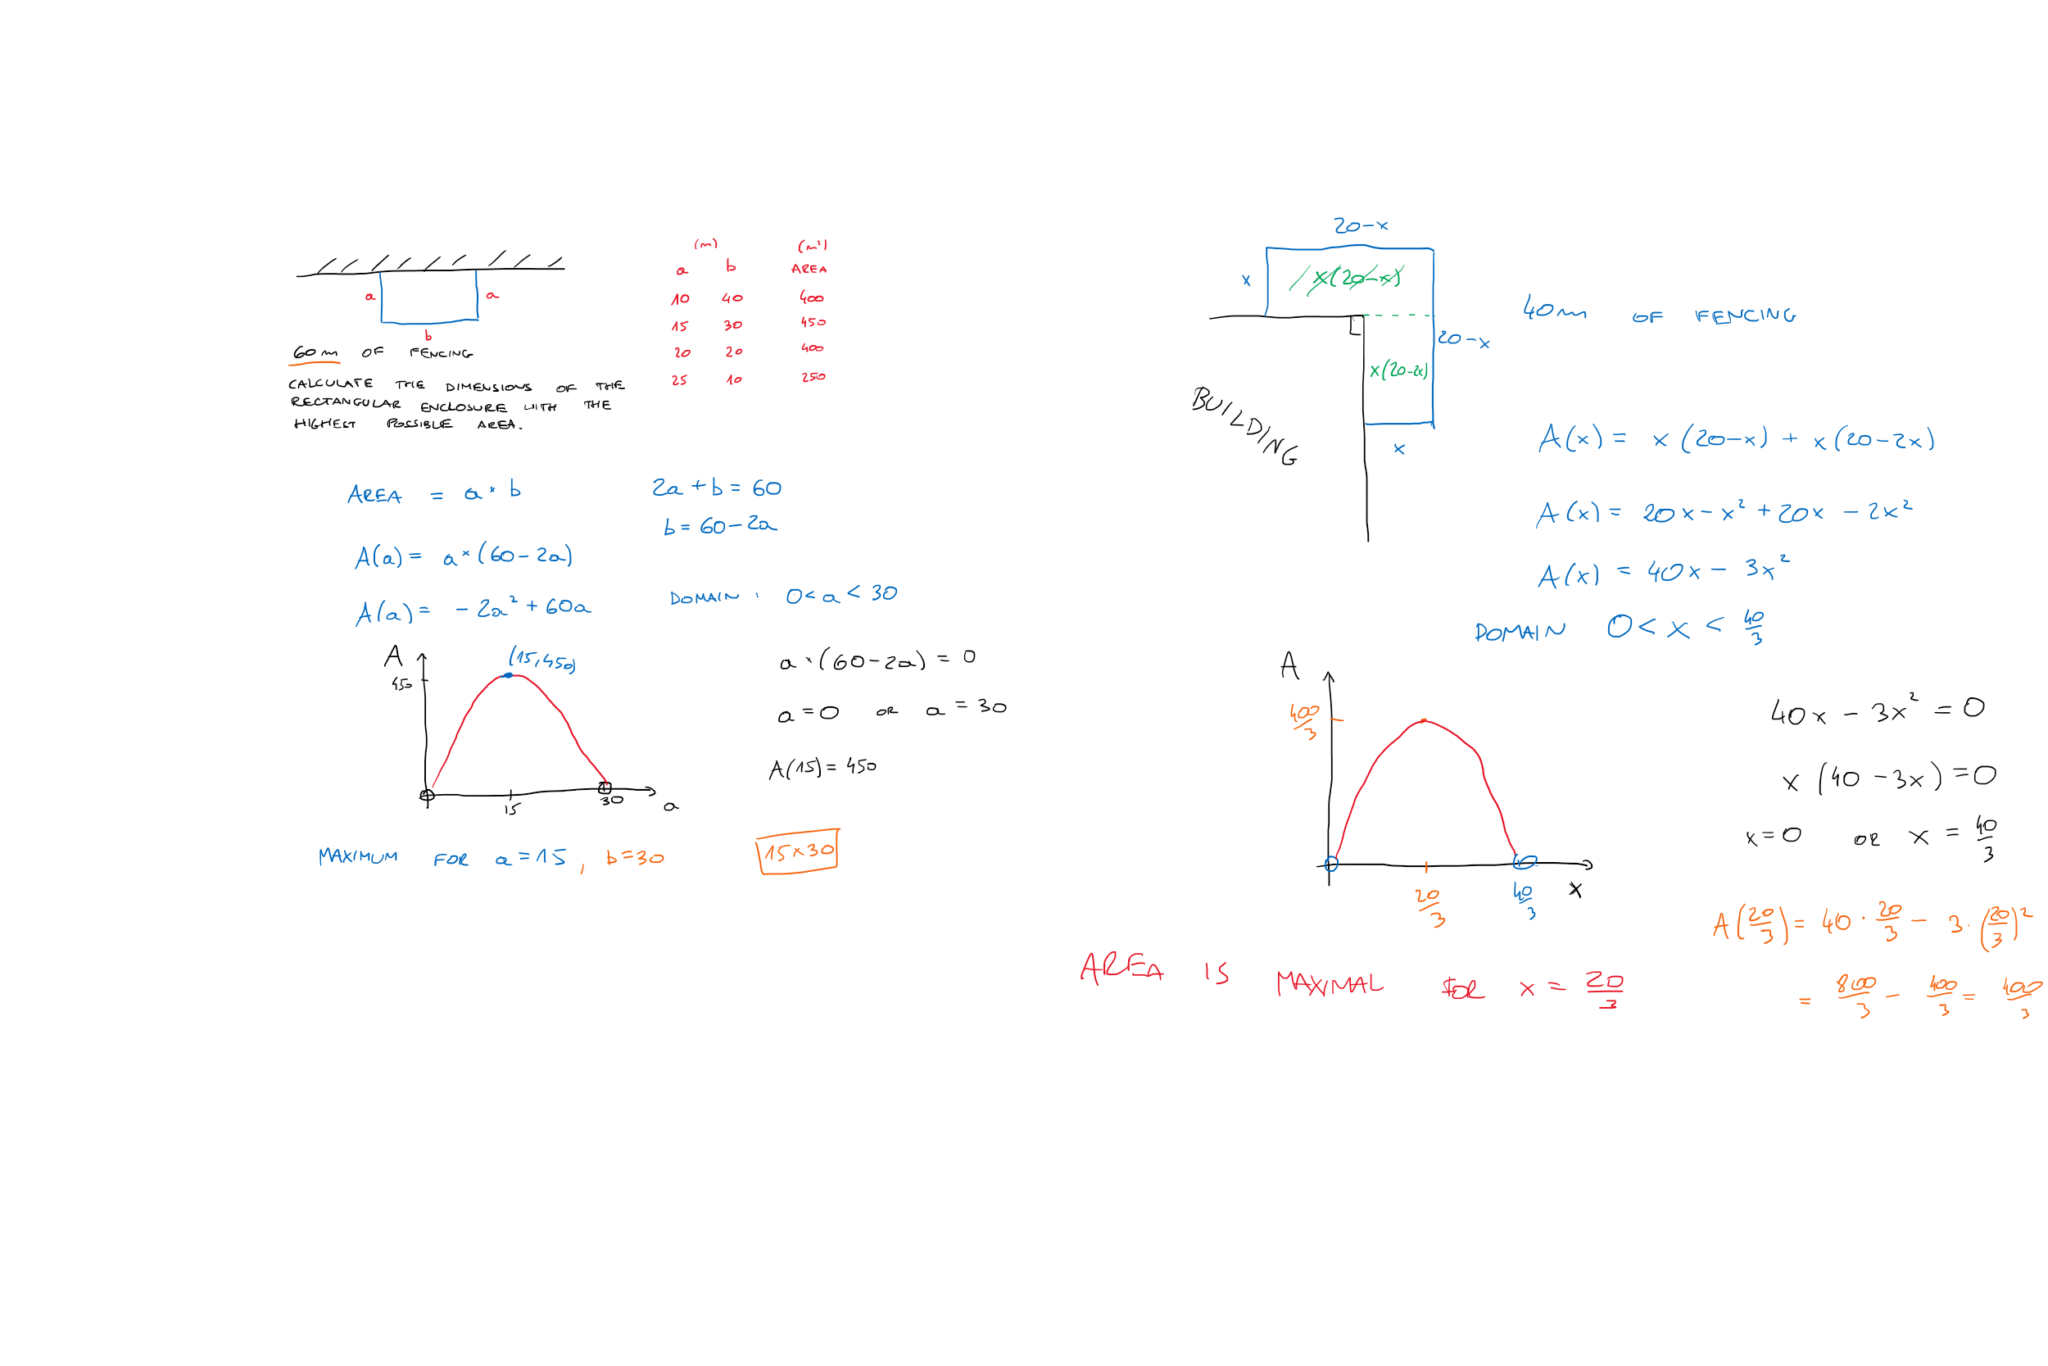 a
a
b
60m OF FENCING
CALCULATE THE DIMENSIONS OF THE
RECTANGULAR ENCLOSURE WITH THE
HIGHEST POSSIBLE AREA.
(m) (m²)
a b AREA
10 40 400
15 30 450
20 20 400
25 10 250
AREA = a × b
2a + b = 60
b = 60 - 2a
A(a) = a × (60 - 2a)
A(a) = -2a² + 60a
DOMAIN: 0 < a < 30
A
450
(15,450)
15
30
a
a × (60 - 2a) = 0
a = 0 OR a = 30
A(15) = 450
MAXIMUM FOR a = 15, b = 30
15 × 30
20 - x
x
x(20-x)
20 - x
x(20-2x)
x
BUILDING
40m OF FENCING
A(x) = x(20-x) + x(20-2x)
A(x) = 20x - x² + 20x - 2x²
A(x) = 40x - 3x²
DOMAIN 0 < x < 40/3
A
400/3
20/3
40/3
x
40x - 3x² = 0
x(40 - 3x) = 0
x = 0 OR x = 40/3
A(20/3) = 40 · 20/3 - 3 · (20/3)²
= 800/3 - 400/3 = 400/3
AREA IS MAXIMAL FOR x = 20/3